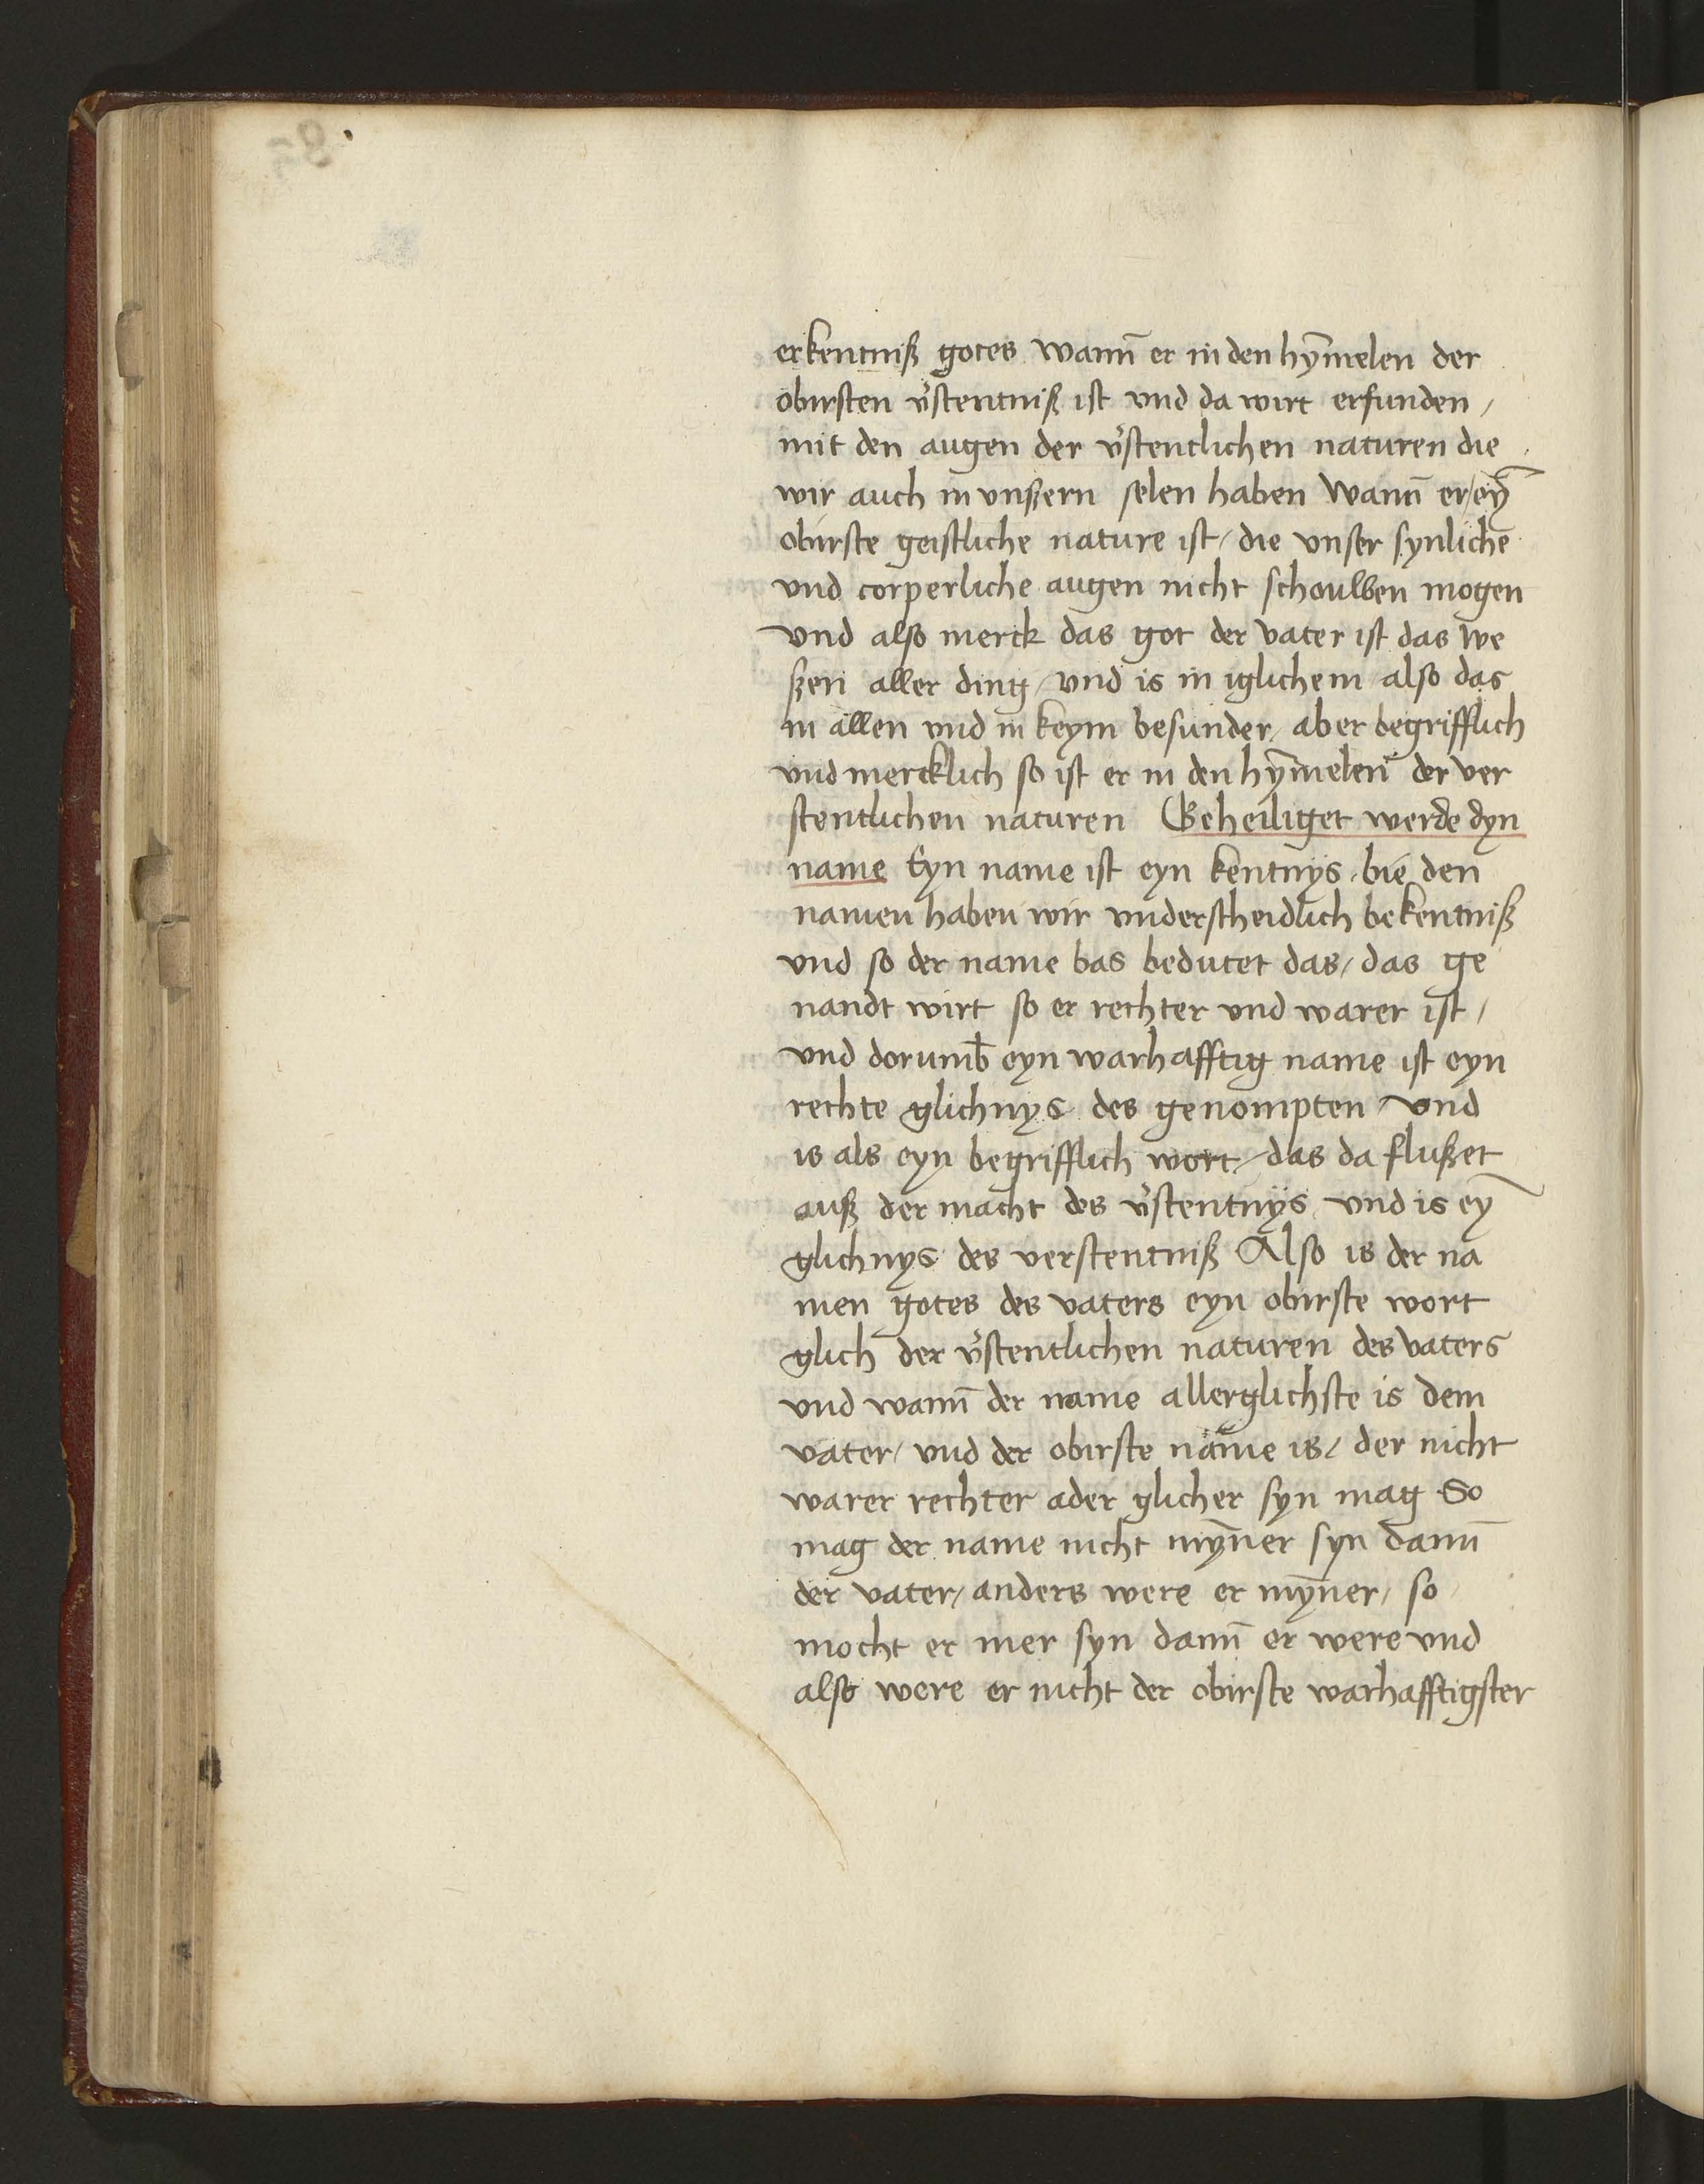 erkentniß gotes wann̄ er in den hȳmelen der
obirsten v̉stentniß ist vnd da wirt erfunden /
mit den augen der v̉stentlichen naturen die
wir auch in vnßern selen haben Wann̄ er / eȳ
obirste geistliche nature ist / die vnser synliche
vnd corperliche augen nicht schouwen mogen
vnd also merck das got der vater ist das we
ßen aller ding / vnd is in iglichem also das
in allen vnd in keym besunder / aber begrifflich
vnd mercklich so ist er in den hȳmelen der ver
stentlichen naturen Geheiliget werde dyn
name Eyn name ist eyn kentnys / bie den
namen haben wir vnderscheidlich bekentniß
vnd so der name bas bedutet das / das ge
nandt wirt so er rechter vnd warer ist /
vnd dorumb̄ eyn warhafftig name ist eyn
rechte glichnys des genompten / vnd
is als eyn begrifflich wort / das da flußet
auß der macht des v̉stentnys vnd is eȳ
glichnys des verstentniß Also is der na
men gotes des vaters eyn obirste wort
glich der v̉stentlichen naturen des vaters
vnd wann̄ der name allerglichste is dem
vater / vnd der obirste name is / der nicht
warer rechter ader glicher syn mag So
mag der name nicht mȳner syn dann̄
der vater / anders were er mȳner / so
mocht er mer syn dann̄ er were vnd
also were er nicht der obirste warhafftigster